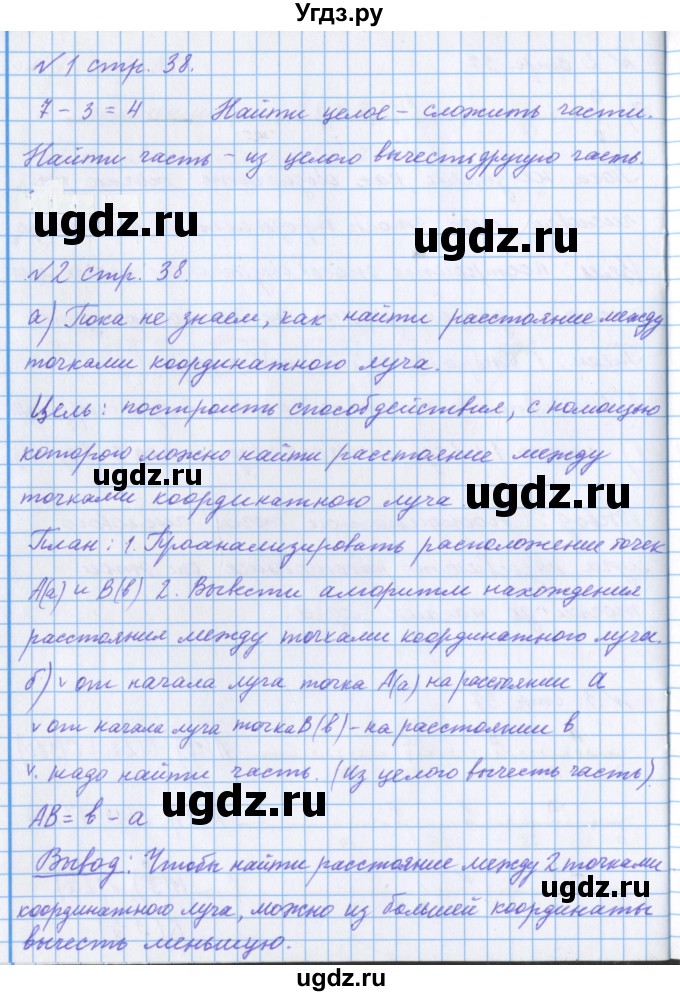 Угдз.ру
№ 1 стр. 38.
7 - 3 = 4 Найти целое - сложить части.
Найти часть - из целого вычесть другую часть.
ugdz.ru ugdz.ru
№ 2 стр. 38
а) Пока не знаем, как найти расстояние между
точками координатного луча.
Цель: построить способ действия, с помощью
которого можно найти расстояние между
ugdz.ru ugdz.ru
точками координатного луча
План: 1. Проанализировать расположение точек
А(а) и В(в) 2. Вывести алгоритм нахождения
расстояния между точками координатного луча.
б) v от начала луча точка А(а) на расстоянии а
v от начала луча точка В(в) - на расстоянии в
v. надо найти часть. (из целого вычесть часть)
АВ = в - а
ugdz.ru
Вывод: Чтобы найти расстояние между 2 точками
координатного луча, можно из большей координаты
вычесть меньшую.
ugdz.ru